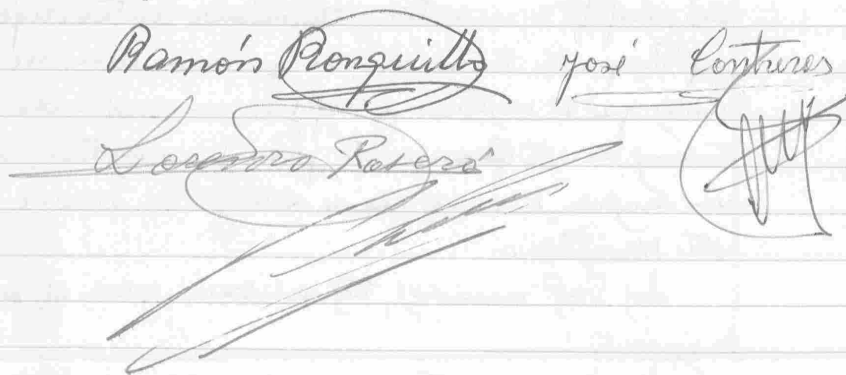 Ramón Ronquillo José Contreres
Lorenzo Roseró